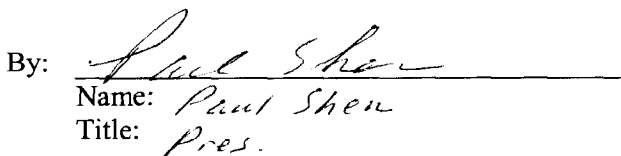 By: Paul Shen
Name: Paul Shen
Title: Pres.